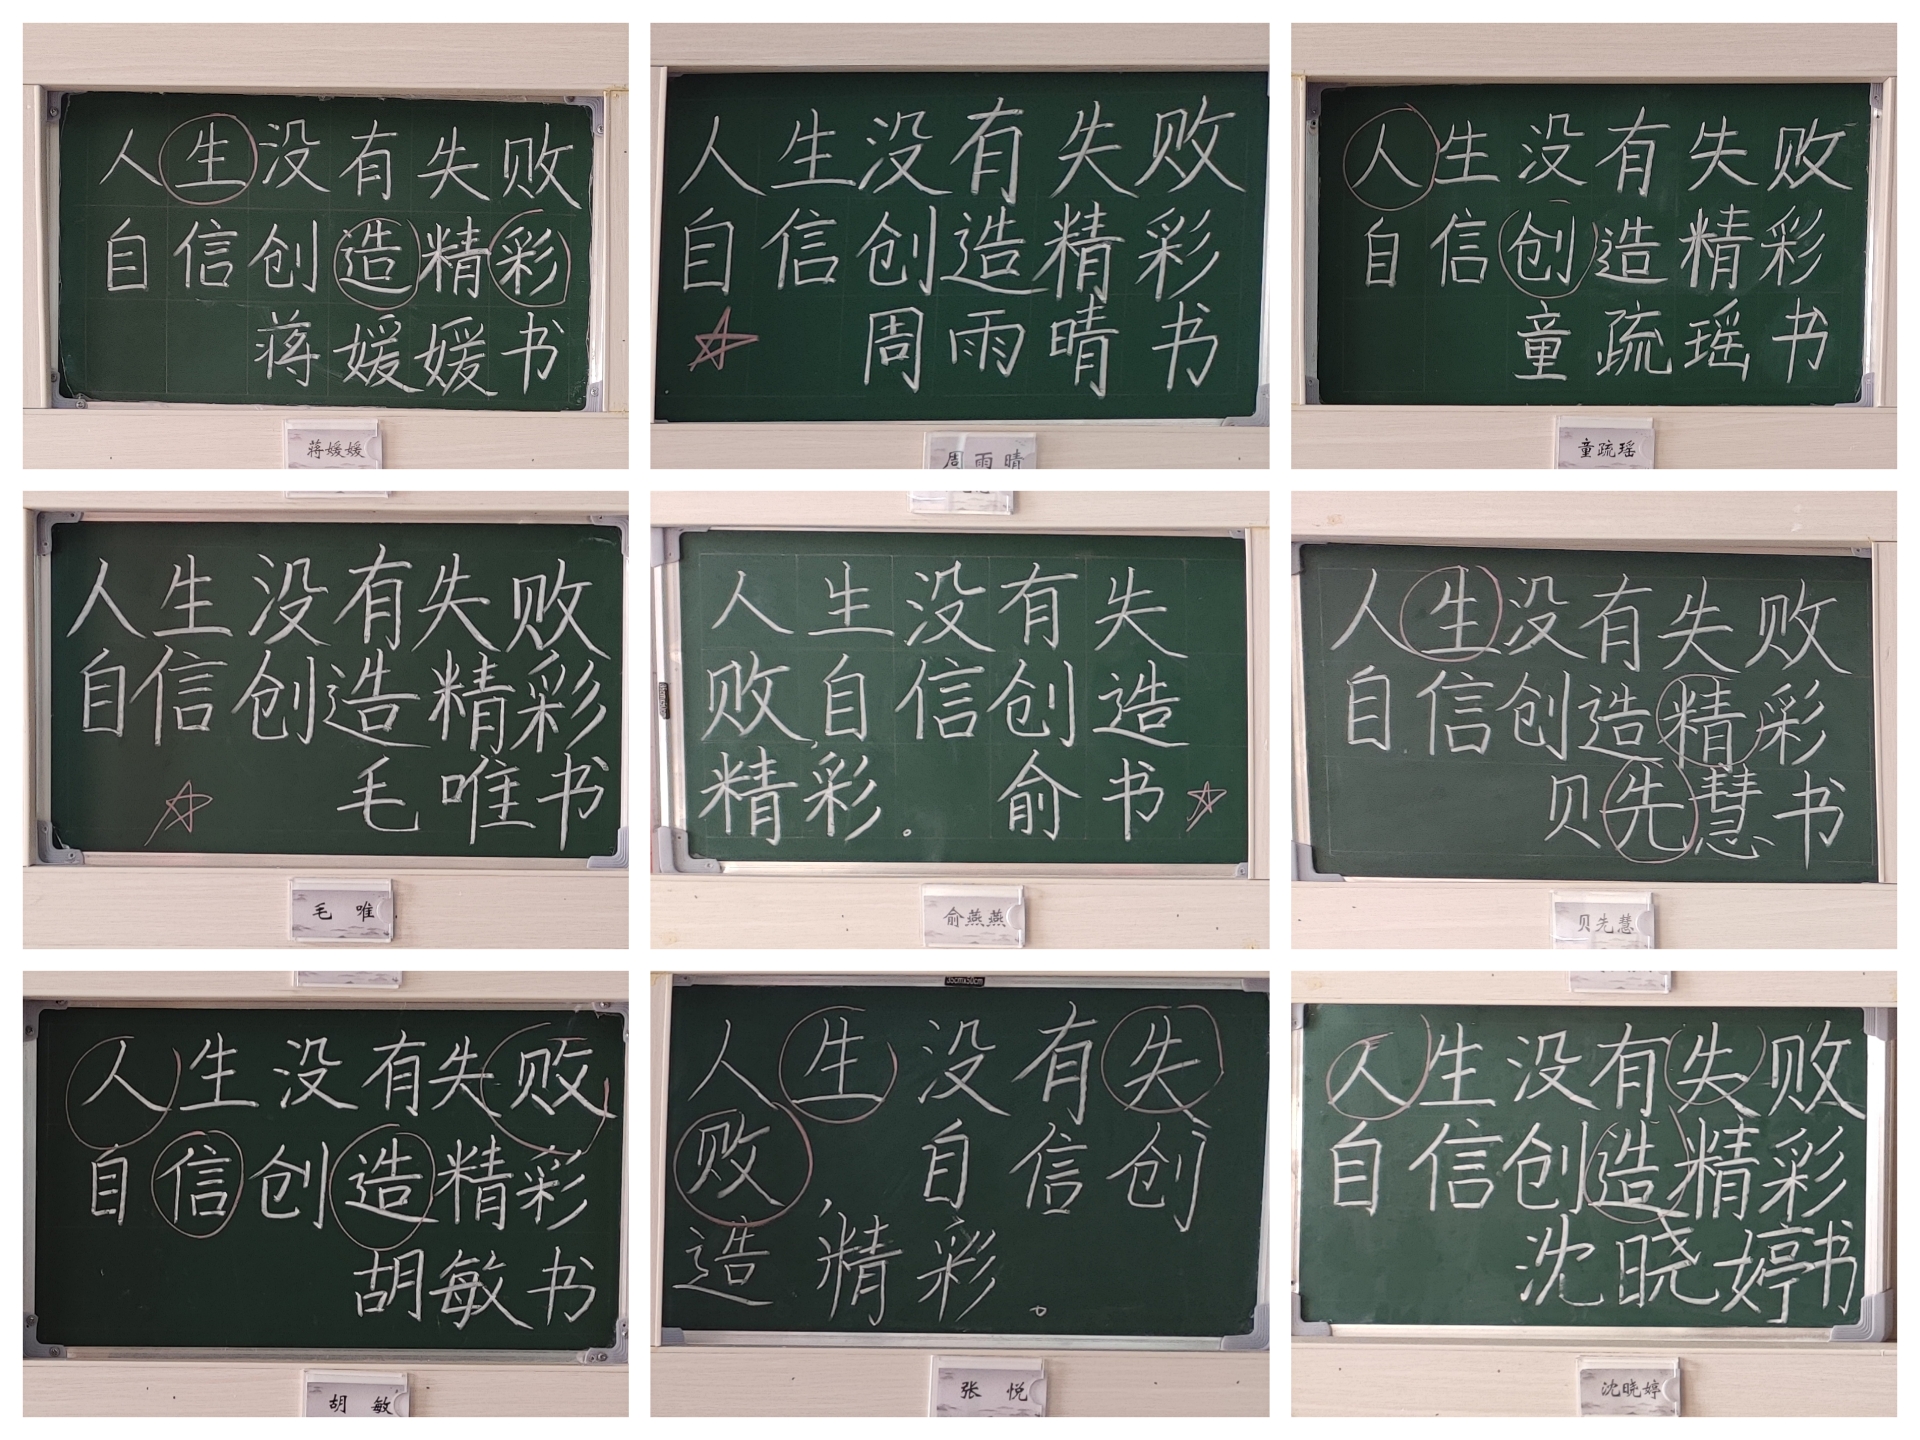 人生没有失败
自信创造精彩
蒋媛媛书
蒋媛媛
人生没有失败
自信创造精彩
周雨晴书
周雨晴
人生没有失败
自信创造精彩
童疏瑶书
童疏瑶
人生没有失败
自信创造精彩
毛唯书
毛 唯
人生没有失
败自信创造
精彩。 俞书
俞燕燕
人生没有失败
自信创造精彩
贝先慧书
贝先慧
人生没有失败
自信创造精彩
胡敏书
胡 敏
35cmx50cm
人生没有失
败 自信创
造精彩。
张 悦
人生没有失败
自信创造精彩
沈晓婷书
沈晓婷